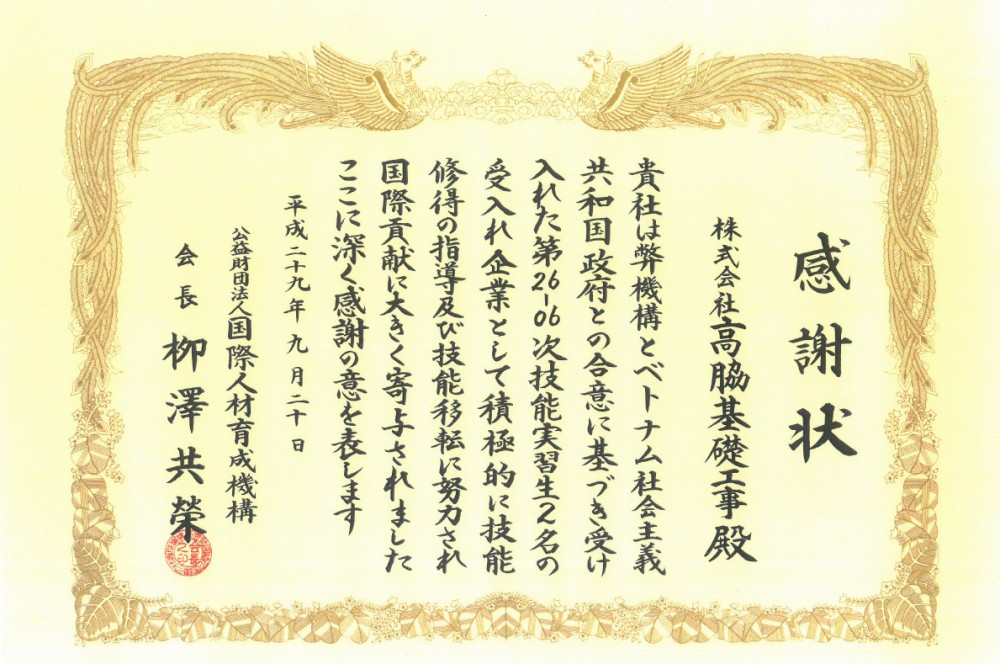 感謝状
株式会社高脇基礎工事殿
貴社は弊機構とベトナム社会主義
共和国政府との合意に基づき受け
入れた第26-06次技能実習生2名の
受入れ企業として積極的に技能
修得の指導及び技能移転に努力され
国際貢献に大きく寄与されました
ここに深く感謝の意を表します
平成二十九年九月二十日
公益財団法人国際人材育成機構
会長 柳澤共榮